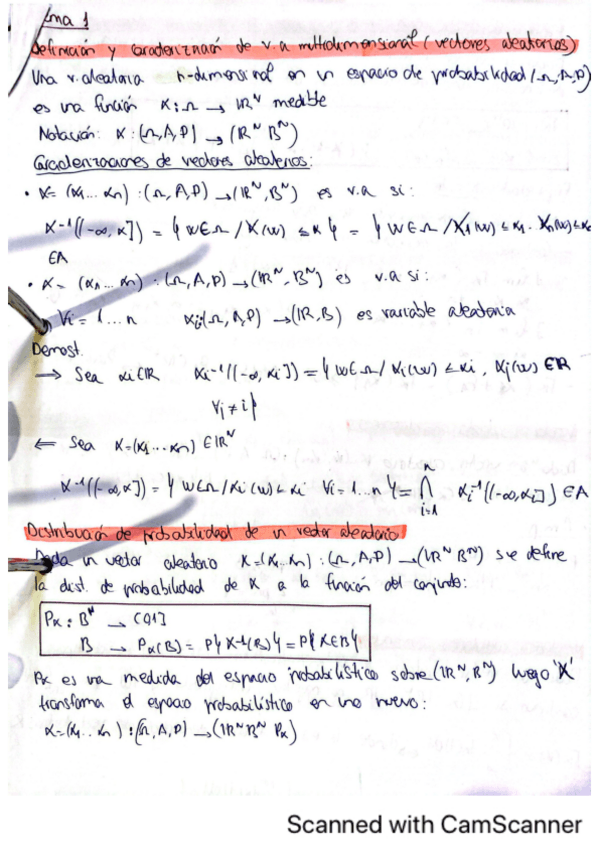 Tema 1
Definición y caracterización de v.a multidimensional (vectores aleatorios)
Una v.aleatoria n-dimensional en un espacio de probabilidad (Ω,A,P)
es una función X: Ω → IRᴺ medible
Notación: X: (Ω,A,P) → (IRᴺ Bᴺ)
Caracterizaciones de vectores aleatorios:
• X= (X1... Xn) : (Ω, A, P) → (IRᴺ, Bᴺ) es v.a si:
X⁻¹((-∞, x]) = { w∈Ω / X(w) ≤ x } = { w∈Ω / X1(w) ≤ x1. Xn(w) ≤ xn
∈A
• X = (X1... Xn) : (Ω, A, P) → (IRᴺ, Bᴺ) es v.a si:
∀i= 1... n Xi(Ω, A, P) → (IR, B) es variable aleatoria
Demost.
→ Sea xi∈IR Xi⁻¹((-∞, xi]) = { w∈Ω / Xi(w) ≤ xi , Xj(w) ∈R
∀j ≠ i }
⇐ Sea X=(X1...Xn) ∈IRᴺ
X⁻¹((-∞,x]) = { w∈Ω / Xi(w) ≤ xi ∀i=1...n } = ⋂ⁿᵢ₌₁ Xi⁻¹((-∞,xi]) ∈A
Distribución de probabilidad de un vector aleatorio
Dada un vector aleatorio X=(X1..Xn) : (Ω, A, P) → (IRᴺ Bᴺ) se define
la dist. de probabilidad de X a la función del conjunto:
Px : Bᴺ → [0,1]
B → Px(B) = P{ X⁻¹(B) } = P{ X∈B }
Px es una medida del espacio probabilístico sobre (IRᴺ, Bᴺ) luego 'X'
transforma el espacio probabilístico en uno nuevo:
X=(X1.. Xn) : (Ω, A, P) → (IRᴺ Bᴺ Px)
Scanned with CamScanner